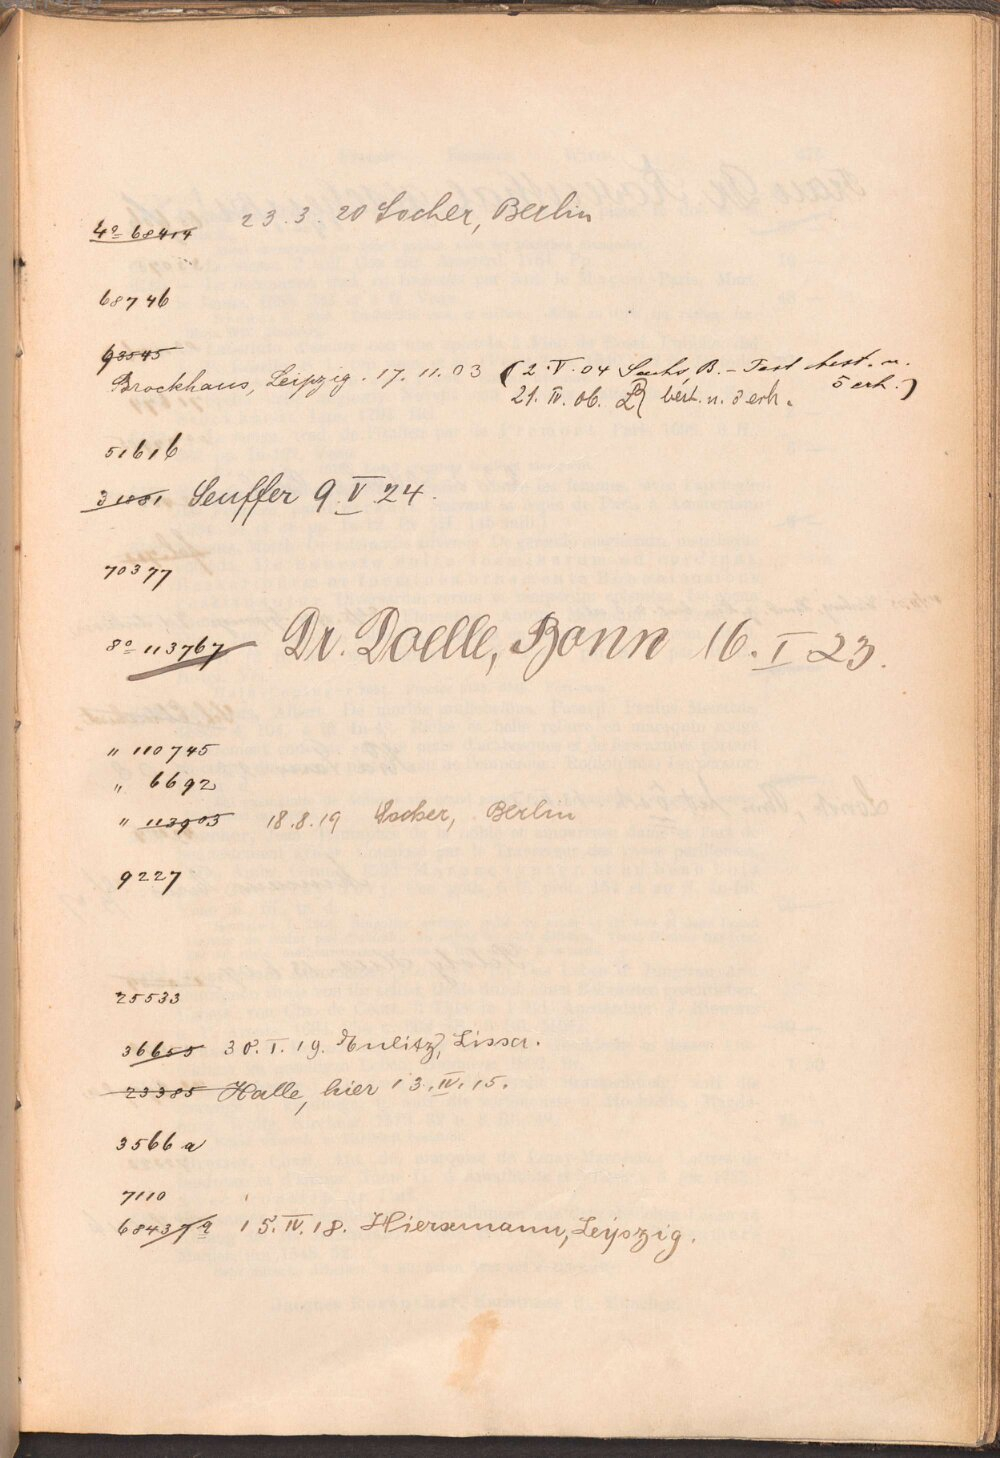 4° 68414 23.3.20 Locher, Berlin
68746
93545
Brockhaus, Leipzig. 17.11.03 (2.V.04 Sachs B. - Test best. u.
5 erh.)
21. IV. 06. best. u. 3 erh.
51616
31081 Seuffer 9.V 24.
70377
8° 113767 Dr. Doelle, Bonn 16. I 23.
" 110745
" 6692
" 113905 18.8.19 Locher, Berlin
9227
25533
36655 30. I. 19. Lissa.
23385 Halle, hier 13. IV. 15.
3566 a
7110
68437 a 15. IV. 18. Hiersemann, Leipzig.